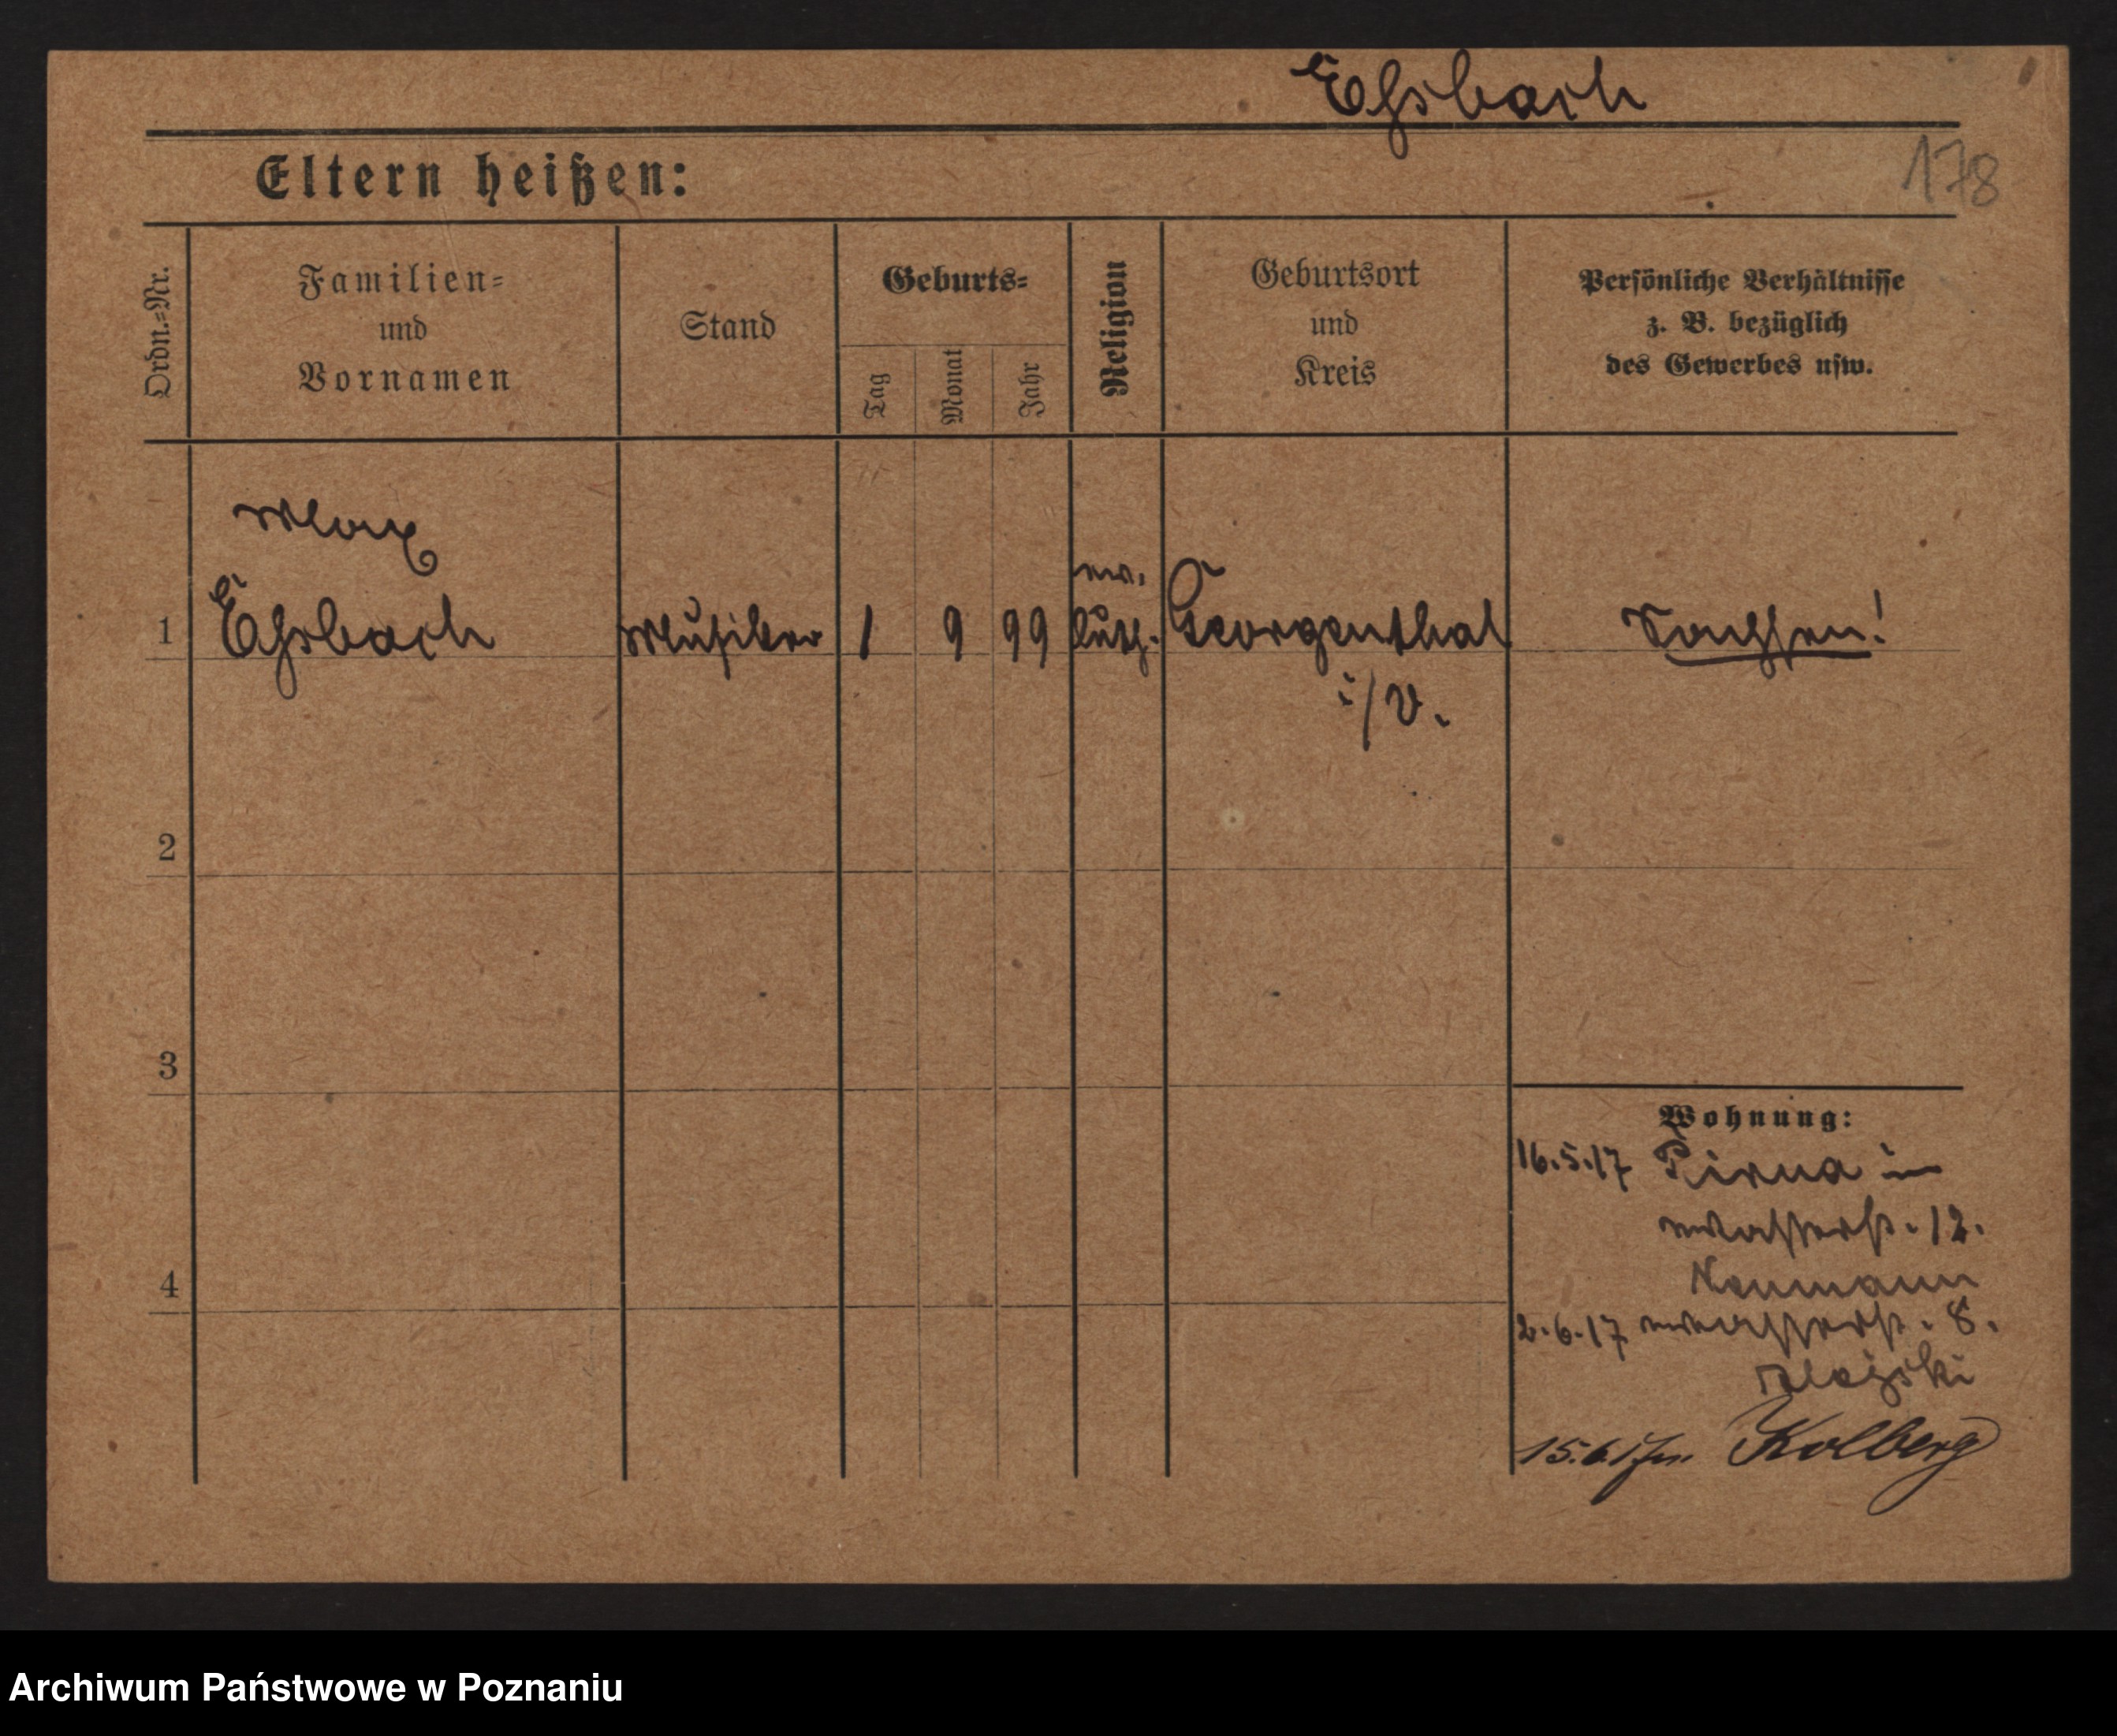 Ehsbach
178
Eltern heißen:
Ordn.=Nr.
Familien=
und
Vornamen
Stand
Geburts=
Tag
Monat
Jahr
Religion
Geburtsort
und
Kreis
Persönliche Verhältnisse
z. B. bezüglich
des Gewerbes usw.
Max
1 Ehsbach Musiker 1 9 99 ev. luth. Georgenthal
i/V.
Sachsen!
2
3
4
Wohnung:
16.5.17 Pirna in
Wasserstr. 12.
Naumann
2.6.17 Wasserstr. 8.
15.6.17 Kolberg
Archiwum Państwowe w Poznaniu